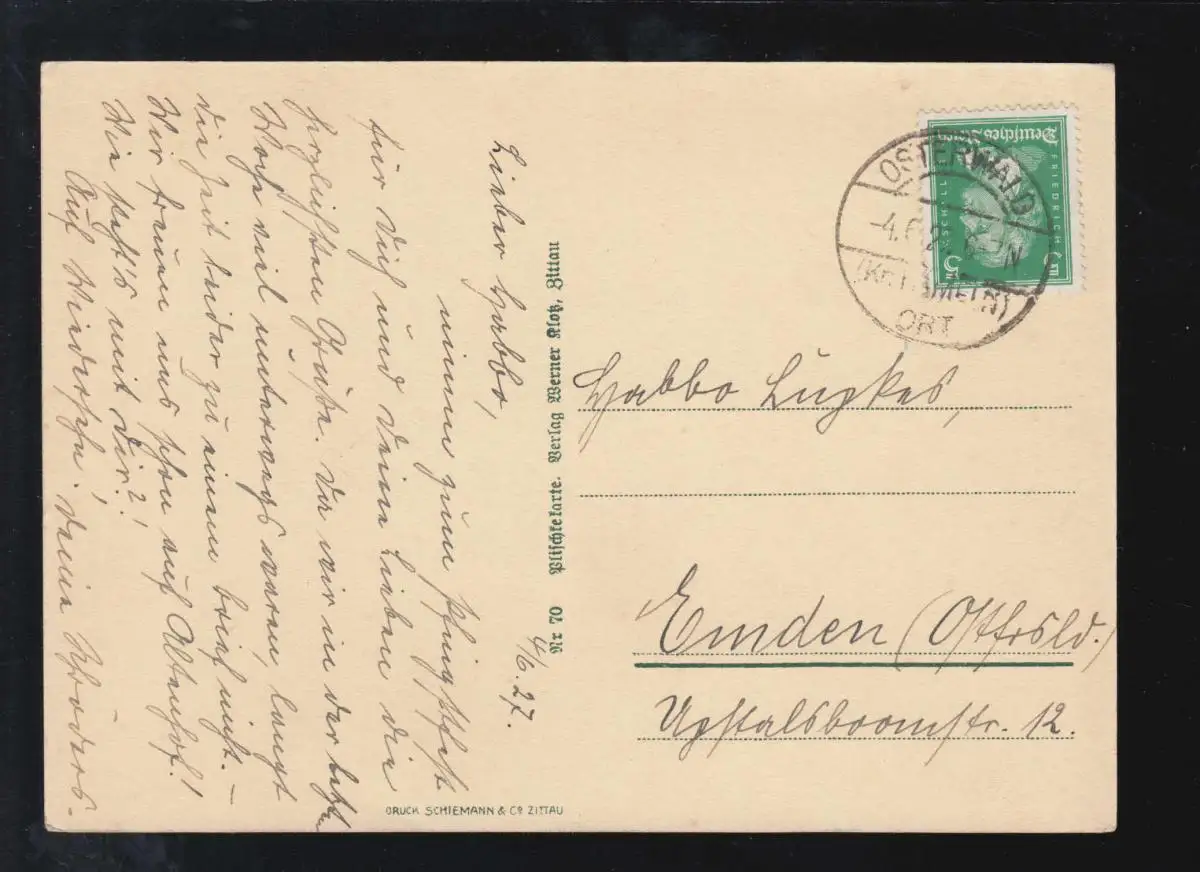 4/6. 27.
Lieber Habbo,
nimm zum Pfingstfest
für Dich und Deine Lieben die
herzlichsten Grüße. Da wir in der letzten
Woche viel unterwegs waren, langt
die Zeit leider zu einem Brief nicht. –
Wir freuen uns schon auf Altenhof!
Wie steht's mit Dir?!
Auf Wiedersehn! Deine
Nr 70 Plischkekarte. Verlag Werner Klotz, Zittau
DRUCK SCHIEMANN & CO ZITTAU
Deutsches Reich
FRIEDRICH
V. SCHILLER
5
5
OSTERWALD
-4.6.27 6-7N
ORT
Habbo Lüpkes,
Emden (Ostfrsld.)
Upstalsboomstr. 12.